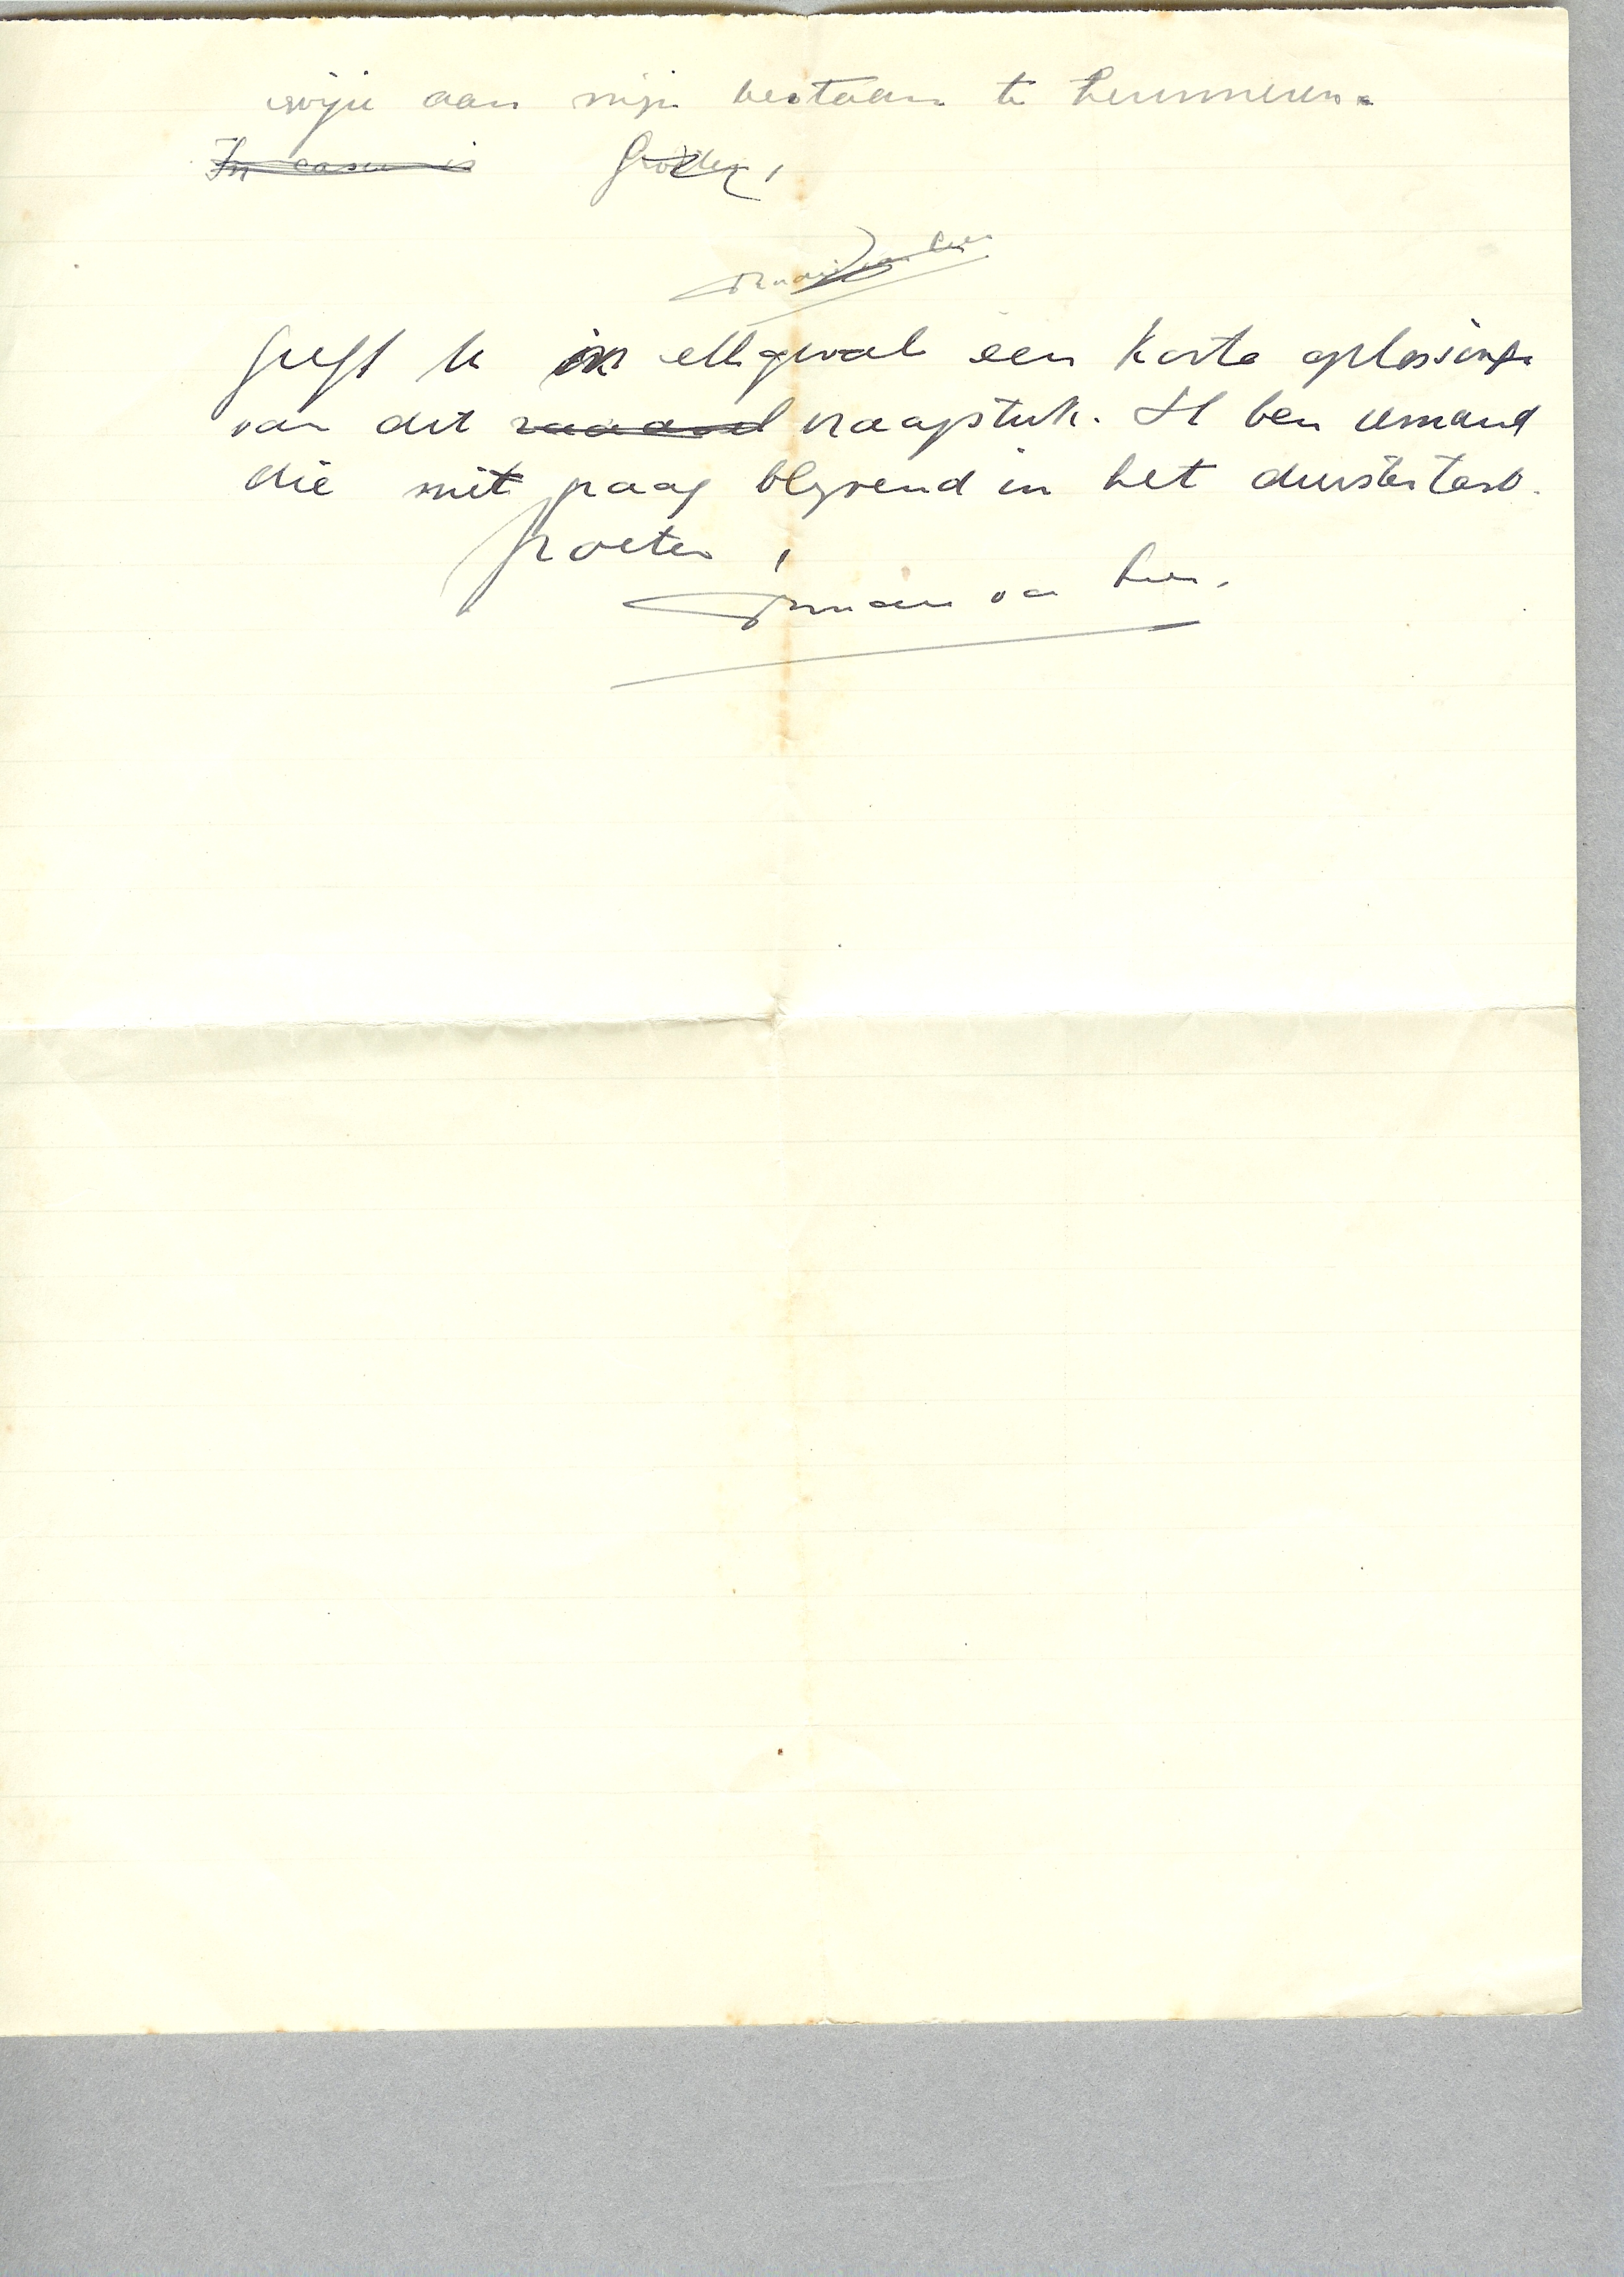 wijze aan mijn bestaan te herinneren.
In casu is Groeten,
van Lier
Geeft U in elk geval een korte oplossing
van dit raadsel vraagstuk. Ik ben iemand
die niet graag blijvend in het duister tast.
Groeten,
van Lier.